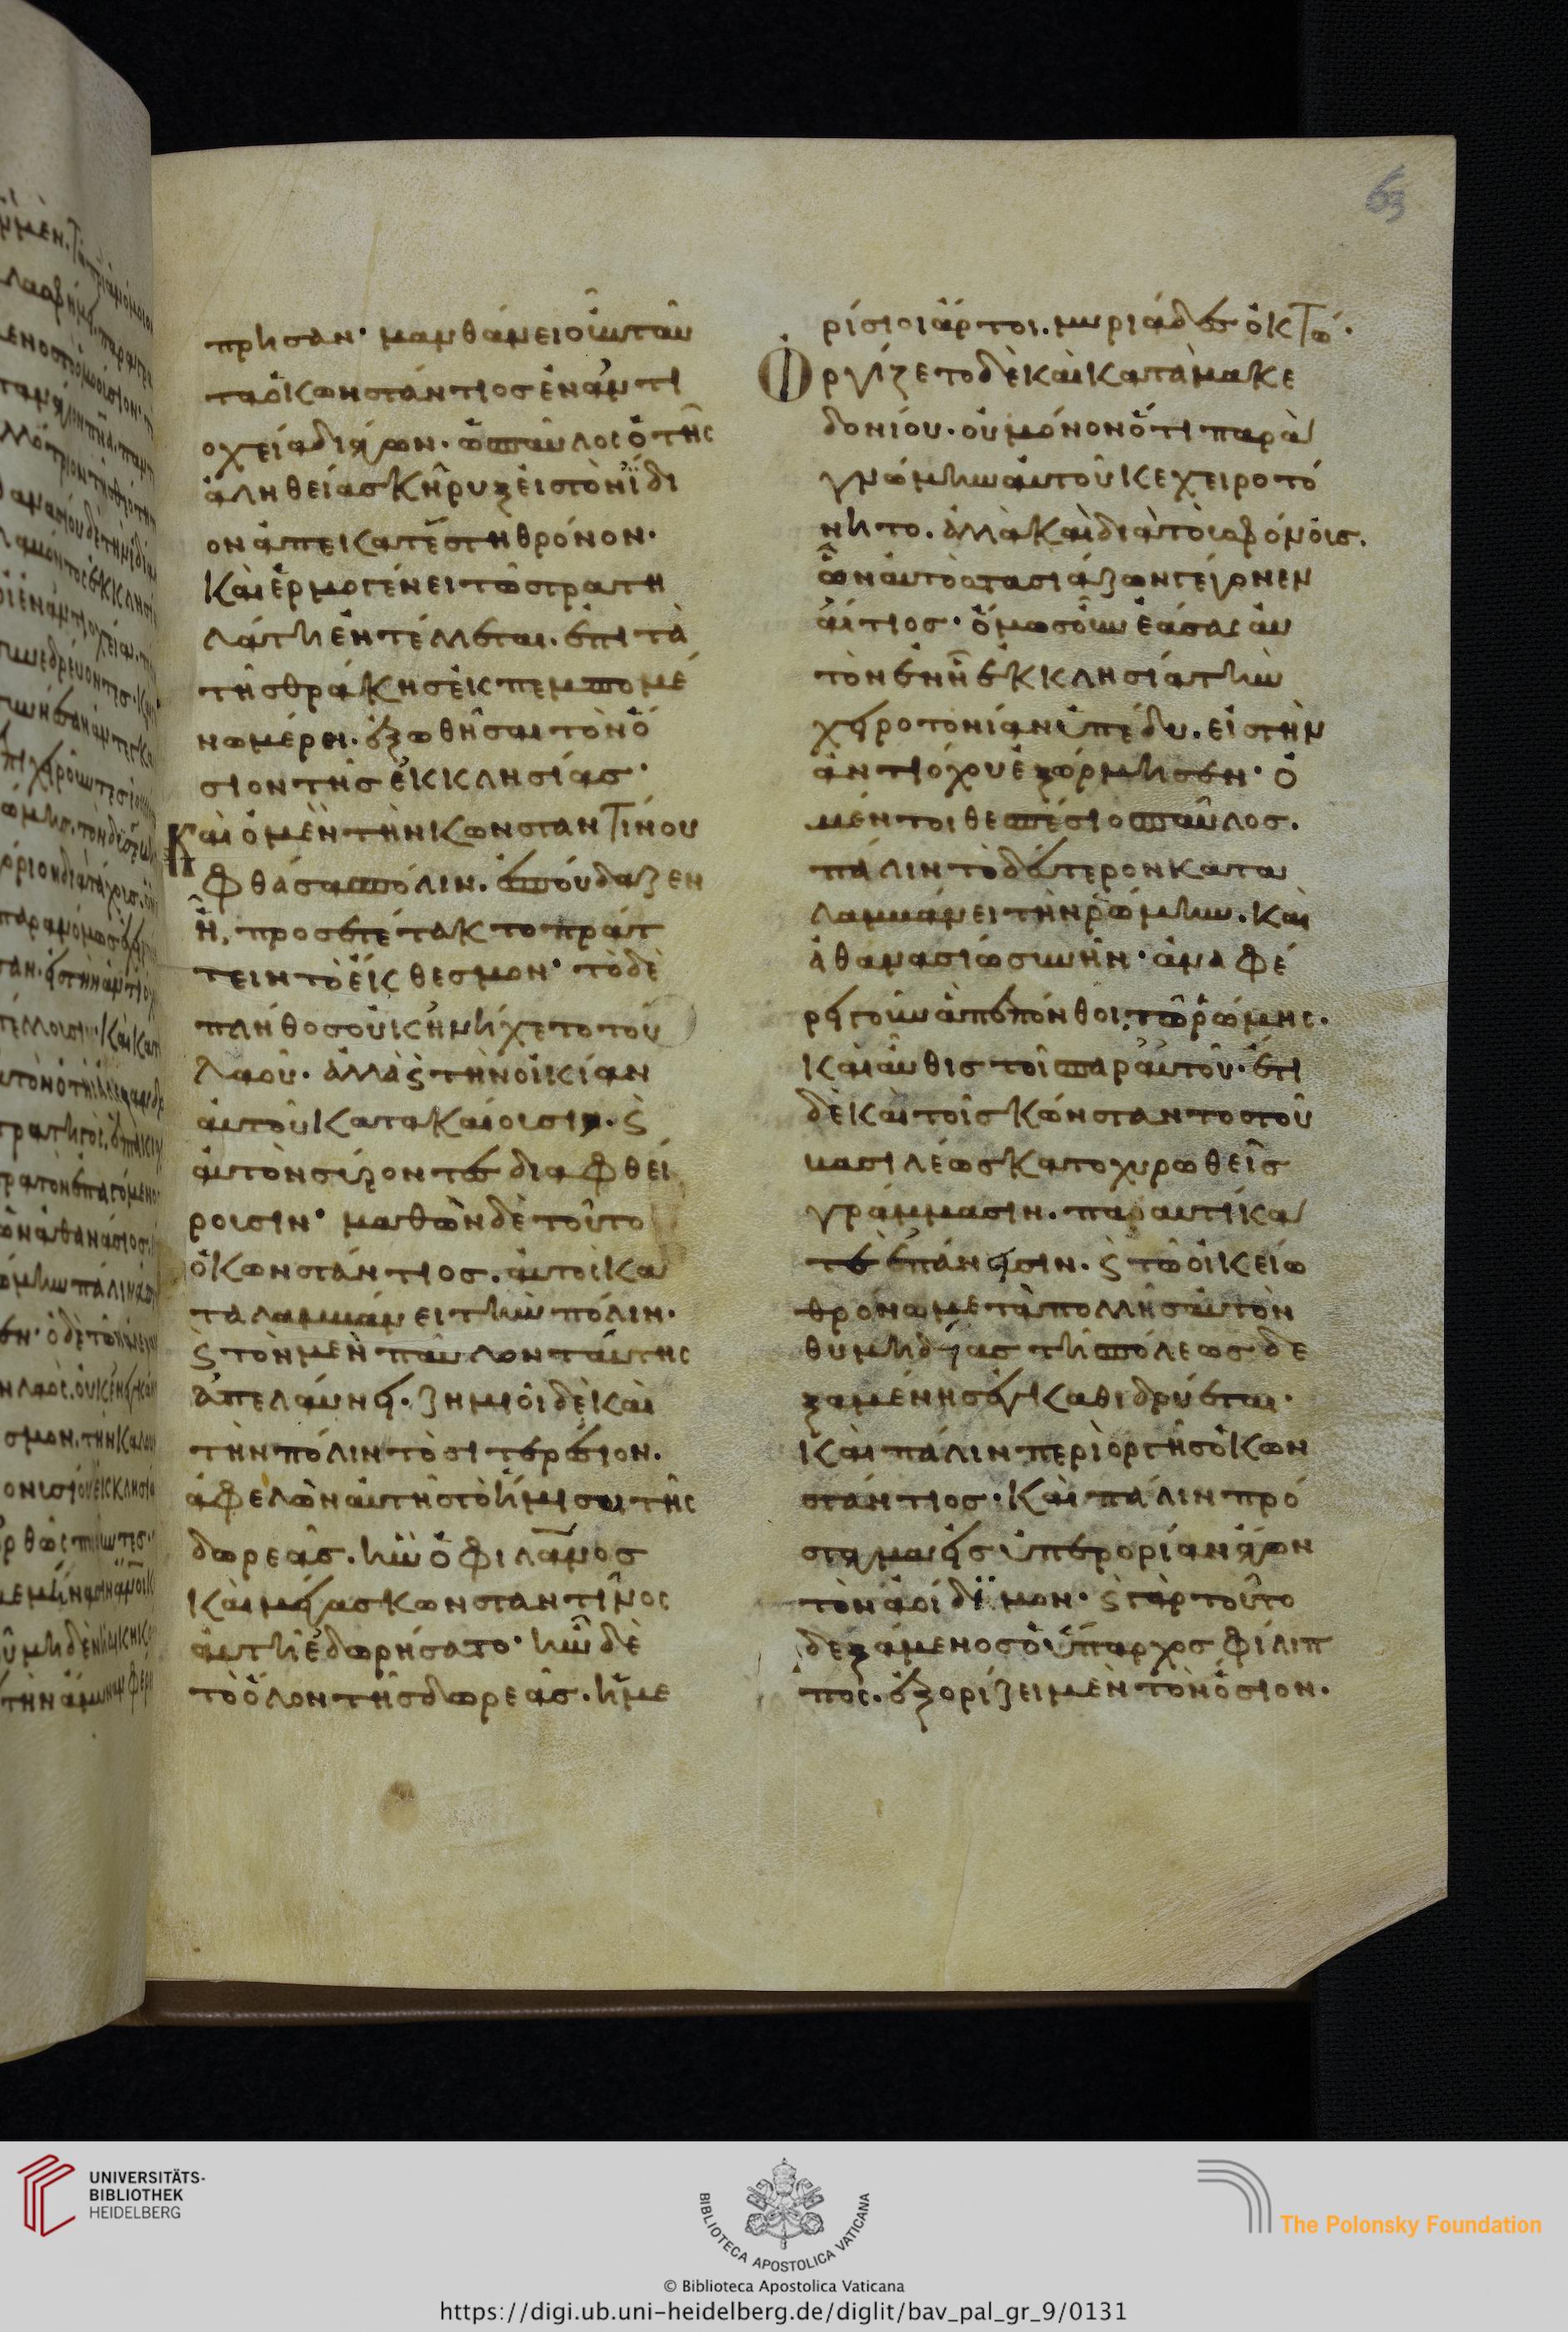 63
πρησαν· μανθάνει οὖν ταῦ
τα ὁ Κωνστάντιος ἐν ἀντι
οχείᾳ διάγων. ὡς παῦλος ὁ τῆς
ἀληθείας κῆρυξ εἰς τὸν ἴδι
ον ἀπεκατέστη θρόνον·
Καὶ ἑρμογένει τῶ στρατη
λάτη ἐντέλλεται. ἐπὶ τὰ
τῆς θράκης ἐκπεμπομέ
νω μέρει. ἐξωθῆσαι τὸν ὅ
σιον τῆς ἐκκλησίας·
Καὶ ὁ μὲν τὴν κωνσταντίνου
φθάσας πόλιν. ἐσπούδαζεν
ἧ, προσετέτακτο πράτ
τειν τὸ εἰς θεσμον· τὸ δὲ
πλῆθος οὐκ ἠνήχετο τοῦ
λαοῦ· ἀλλὰ ϛ τὴν οἰκίαν
αὐτοῦ κατακαίουσιν. ϛ
αὐτὸν σύροντες διαφθεί
ρουσιν· μαθὼν δὲ τοῦτο
ὁ Κωνστάντιος. αὐτοῖ κα
ταλαμβάνει τὴν πόλιν·
ϛ τὸν μὲν παῦλον ταύτης
ἀπελαύνει. ζημιοῖ δὲ καὶ
τὴν πόλιν τὸ σιτερέσιον.
ἀφελὼν αὐτῆς τὸ ἥμισυ τῆς
δωρεᾶς. ἣν ὁ φιλᾶνος
καὶ μέγας κωνσταντῖνος
αὐτῆ ἐδωρήσατο· ἦν δὲ
τὸ ὅλον τῆς δωρεᾶς. ἡμε
ρίσιοι ἄρτοι. μυριάδες ὀκτώ·
Ὠργίζετο δὲ καὶ κατὰ μακε
δονίου· οὐ μόνον ὅτι παρὰ
γνώμην αὐτοῦ κεχειροτό
νητο. ἀλλὰ καὶ διὰ τὸ
ὧν αὐτὸς στασιάζων γέγονεν
αἴτιος· ὅμως οὖν ἐάσας αὐ
τὸν ἐν ἧ ἐκκλησία τὴν
χειροτονίαν ὑπέδυ. εἰς τὴν
ἀντιόχου ἐξώρμησεν· ὁ
μέντοι θεσπέσιος παῦλος.
πάλιν τὸ δεύτερον κατα
λαμβάνει τὴν ῥώμην. καὶ
ἀθανασίω συνῆν· ἀναφέ
ρει γοῦν ἃ πεπόνθοι, τῶ ῥώμης.
καὶ αὖθις τοῖς παρ' αὐτοῦ· ἔτι
δὲ καὶ τοῖς Κώνσταντος τοῦ
βασιλέως κατοχυρωθεὶς
γράμμασιν. παραυτίκα
τε ἐπάνεισιν. ϛ τῶ οἰκείω
θρόνω μετὰ πολλῆς αὐτὸν
θυμηδίας τῆς πόλεως δε
ξαμένης ἐγκαθιδρύεται·
Καὶ πάλιν περιοργὴς ὁ Κων
στάντιος· καὶ πάλιν πρό
σταγμα εἰς ὑπερορίαν ἄγον
τὸν ἀοίδιμον· ϛ γὰρ τοῦτο
δεξάμενος ὁ ὕπαρχος φίλιπ
πος. ἐξορίζει μὲν τὸν ὅσιον.
UNIVERSITÄTS-
BIBLIOTHEK
HEIDELBERG
BIBLIOTECA APOSTOLICA VATICANA
The Polonsky Foundation
© Biblioteca Apostolica Vaticana
https://digi.ub.uni-heidelberg.de/diglit/bav_pal_gr_9/0131